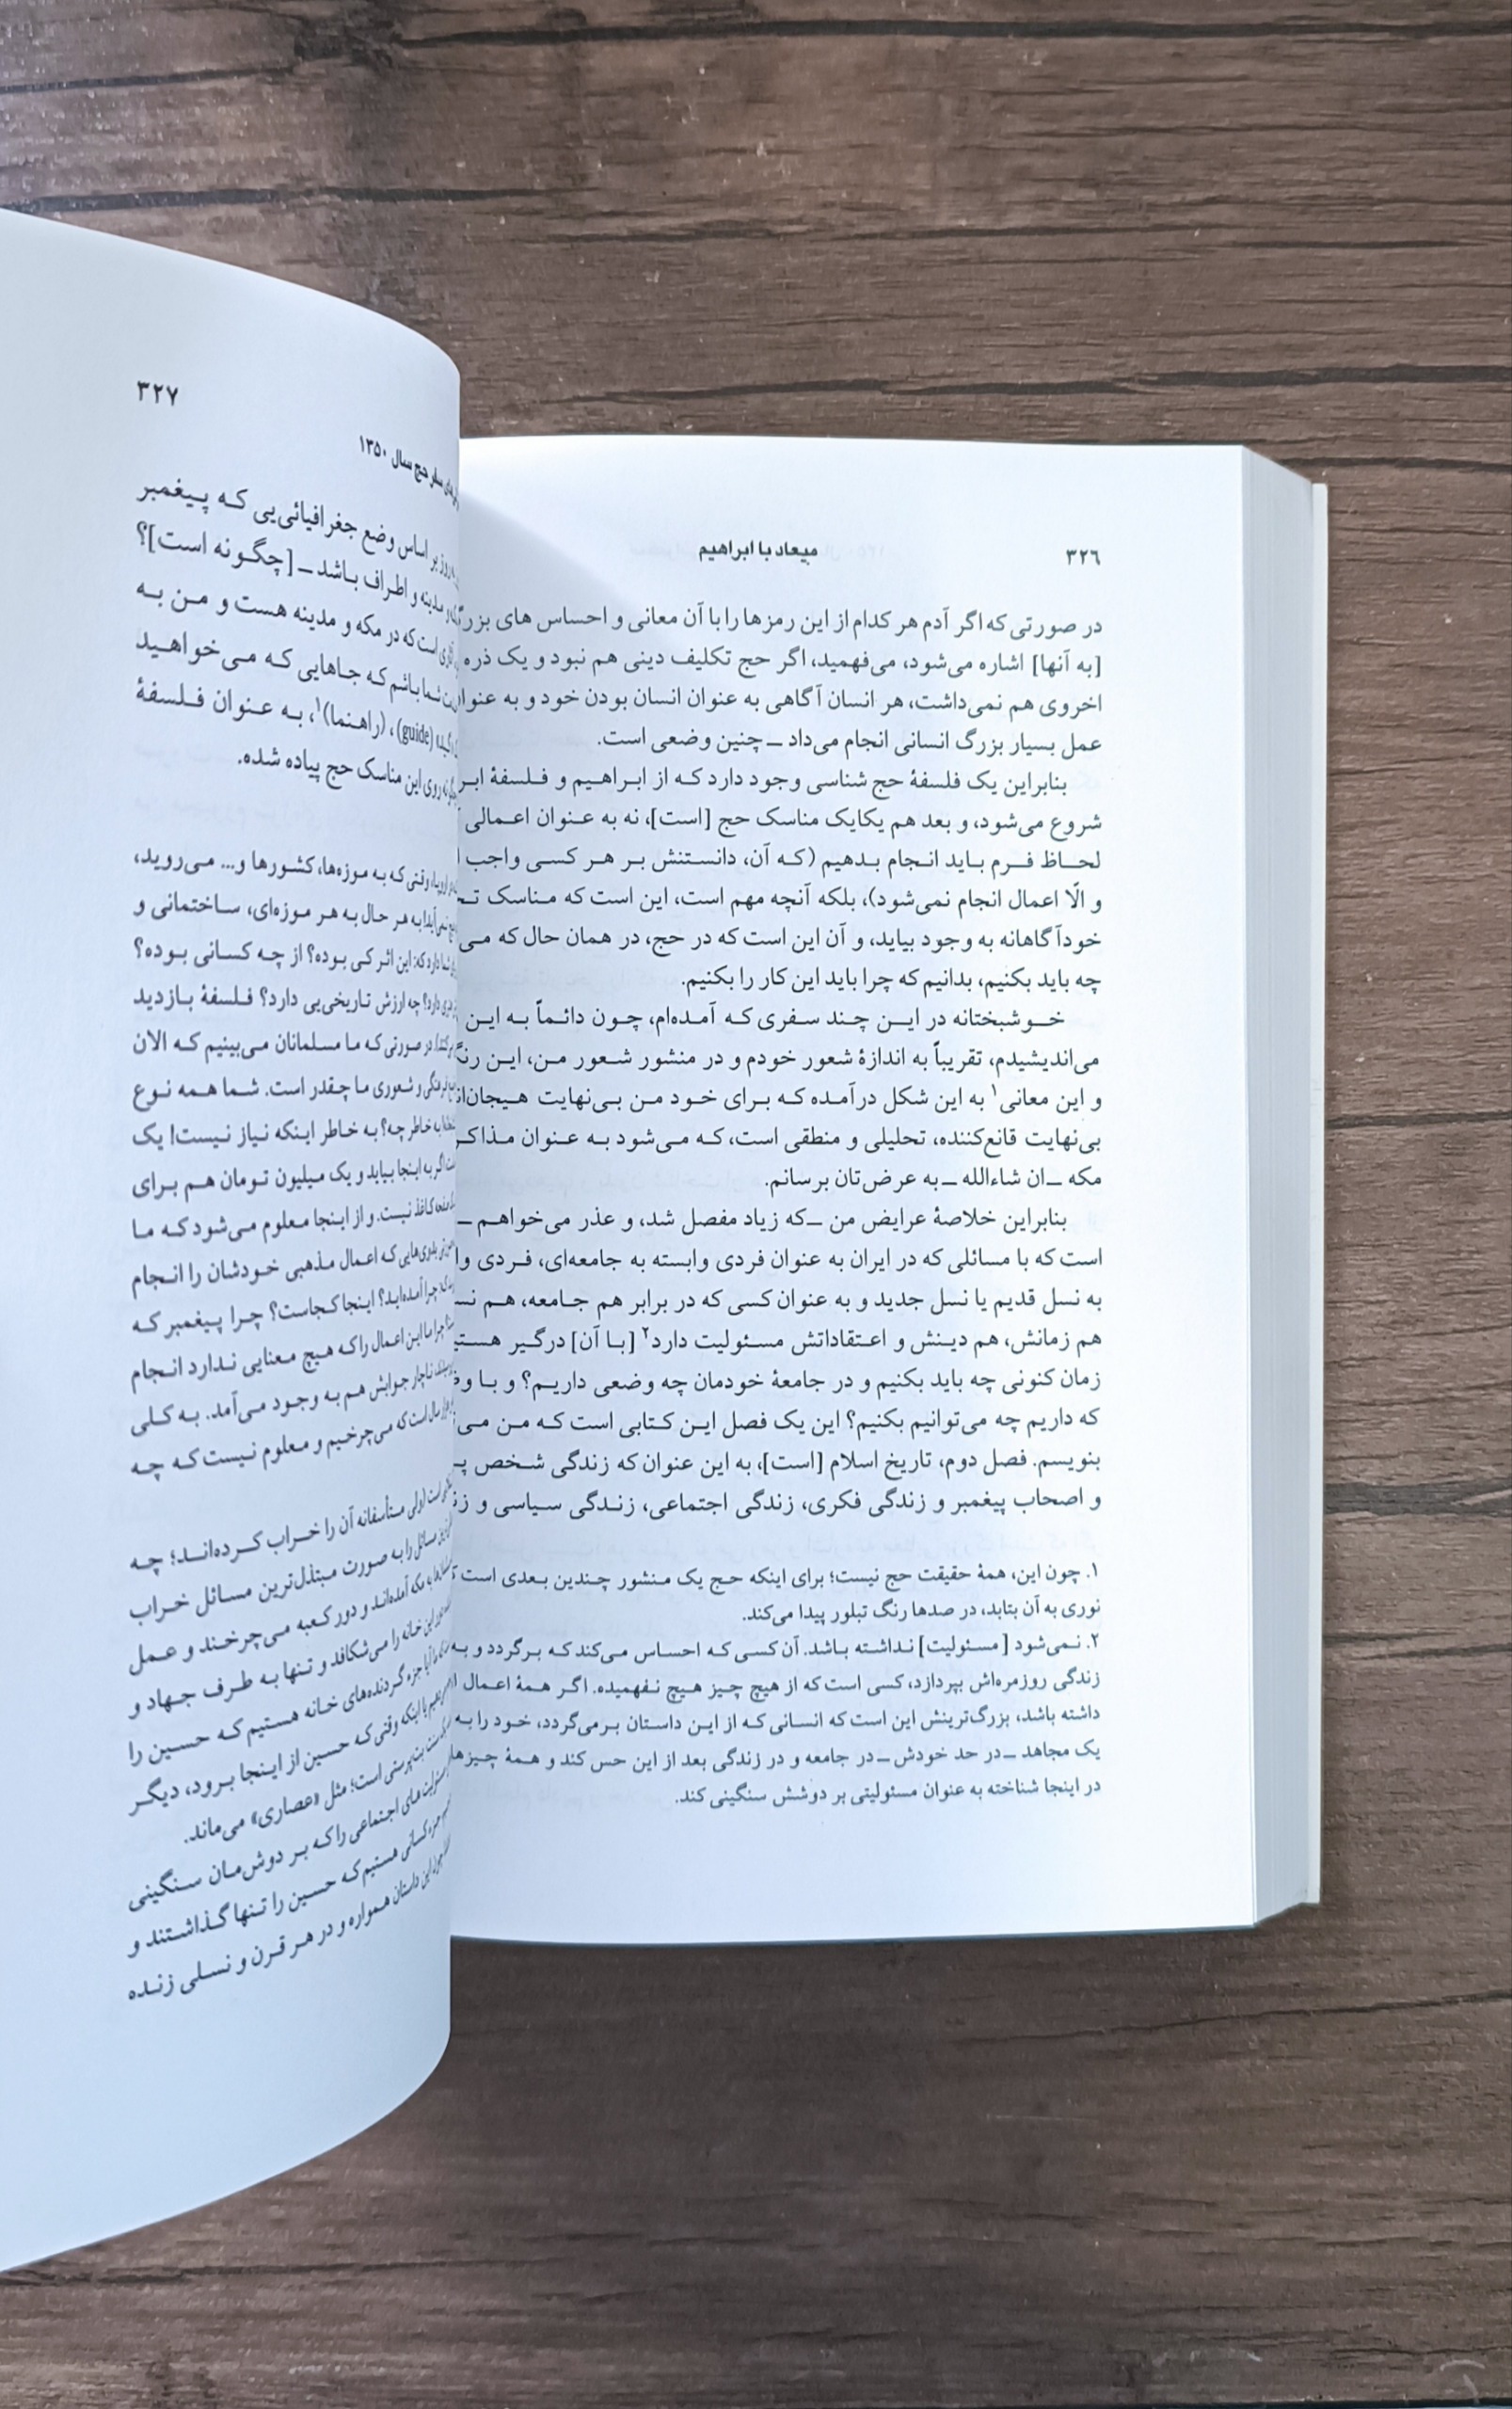 ۳۲۶
میعاد با ابراهیم
در صورتی که اگر آدم هر کدام از این رمزها را با آن معانی و احساس های
[به آنها] اشاره می‌شود، می‌فهمید، اگر حج تکلیف دینی هم نبود و یک ذره
اخروی هم نمی‌داشت، هر انسان آگاهی به عنوان انسان بودن خود و به
عمل بسیار بزرگ انسانی انجام می‌داد ــ چنین وضعی است.
بنابراین یک فلسفهٔ حج شناسی وجود دارد که از ابراهیم و فلسفهٔ
شروع می‌شود، و بعد هم یکایک مناسک حج [است]، نه به عنوان اعمالی
لحاظ فرم باید انجام بدهیم (که آن، دانستنش بر هر کسی واجب
و الّا اعمال انجام نمی‌شود)، بلکه آنچه مهم است، این است که مناسک
خودآگاهانه به وجود بیاید، و آن این است که در حج، در همان حال که
چه باید بکنیم، بدانیم که چرا باید این کار را بکنیم.
خوشبختانه در این چند سفری که آمده‌ام، چون دائماً به این
می‌اندیشیدم، تقریباً به اندازهٔ شعور خودم و در منشور شعور من، این
و این معانی۱ به این شکل درآمده که برای خود من بی‌نهایت
بی‌نهایت قانع‌کننده، تحلیلی و منطقی است، که می‌شود به عنوان
مکه ــ ان شاءالله ــ به عرض‌تان برسانم.
بنابراین خلاصهٔ عرایض من ــ که زیاد مفصل شد، و عذر می‌خواهم ــ
است که با مسائلی که در ایران به عنوان فردی وابسته به جامعه‌ای، فردی
به نسل قدیم یا نسل جدید و به عنوان کسی که در برابر هم جامعه، هم
هم زمانش، هم دینش و اعتقاداتش مسئولیت دارد۲ [با آن] درگیر
زمان کنونی چه باید بکنیم و در جامعهٔ خودمان چه وضعی داریم؟ و با
که داریم چه می‌توانیم بکنیم؟ این یک فصل این کتابی است که من
بنویسم. فصل دوم، تاریخ اسلام [است]، به این عنوان که زندگی شخص
و اصحاب پیغمبر و زندگی فکری، زندگی اجتماعی، زندگی سیاسی و
۱. چون این، همهٔ حقیقت حج نیست؛ برای اینکه حج یک منشور چندین بعدی است
نوری به آن بتابد، در صدها رنگ تبلور پیدا می‌کند.
۲. نمی‌شود [مسئولیت] نداشته باشد. آن کسی که احساس می‌کند که برگردد و
زندگی روزمره‌اش بپردازد، کسی است که از هیچ چیز هیچ نفهمیده. اگر همهٔ اعمال
داشته باشد، بزرگ‌ترینش این است که انسانی که از این داستان برمی‌گردد، خود را به
یک مجاهد ــ در حد خودش ــ در جامعه و در زندگی بعد از این حس کند و همهٔ
در اینجا شناخته به عنوان مسئولیتی بر دوشش سنگینی کند.
۳۲۷
سفر حج سال ۱۳۵۰
بر اساس وضع جغرافیائی‌یی که پیغمبر
مدینه و اطراف باشد ــ [چگونه است]؟
است که در مکه و مدینه هست و من به
شما باشم که جاهایی که می‌خواهید
(guide)، (راهنما)۱، به عنوان فلسفهٔ
روی این مناسک حج پیاده شده.
وقتی که به موزه‌ها، کشورها و... می‌روید،
به هر حال به هر موزه‌ای، ساختمانی و
که: این اثر کی بوده؟ از چه کسانی بوده؟
دارد؟ چه ارزش تاریخی‌یی دارد؟ فلسفهٔ بازدید
در صورتی که ما مسلمانان می‌بینیم که الان
و شعوری ما چقدر است. شما همه نوع
به خاطر چه؟ به خاطر اینکه نیاز نیست! یک
اگر به اینجا بیاید و یک میلیون تومان هم برای
کاغذ نیست. و از اینجا معلوم می‌شود که ما
که اعمال مذهبی خودشان را انجام
چرا آمده‌اید؟ اینجا کجاست؟ چرا پیغمبر که
چرا ما این اعمال را که هیچ معنایی ندارد انجام
ناچار جوابش هم به وجود می‌آمد. به کلی
سال است که می‌چرخیم و معلوم نیست که چه
است اولی متأسفانه آن را خراب کرده‌اند؛ چه
مسائل را به صورت مبتذل‌ترین مسائل خراب
به مکه آمده‌اند و دور کعبه می‌چرخند و عمل
این خانه را می‌شکافد و تنها به طرف جهاد و
آیا جزء گردنده‌های خانه هستیم که حسین را
یا اینکه وقتی که حسین از اینجا برود، دیگر
بت‌پرستی است؛ مثل «عصاری» می‌ماند.
مسئولیت‌های اجتماعی را که بر دوش‌مان سنگینی
جزء کسانی هستیم که حسین را تنها گذاشتند و
این داستان همواره و در هر قرن و نسلی زنده